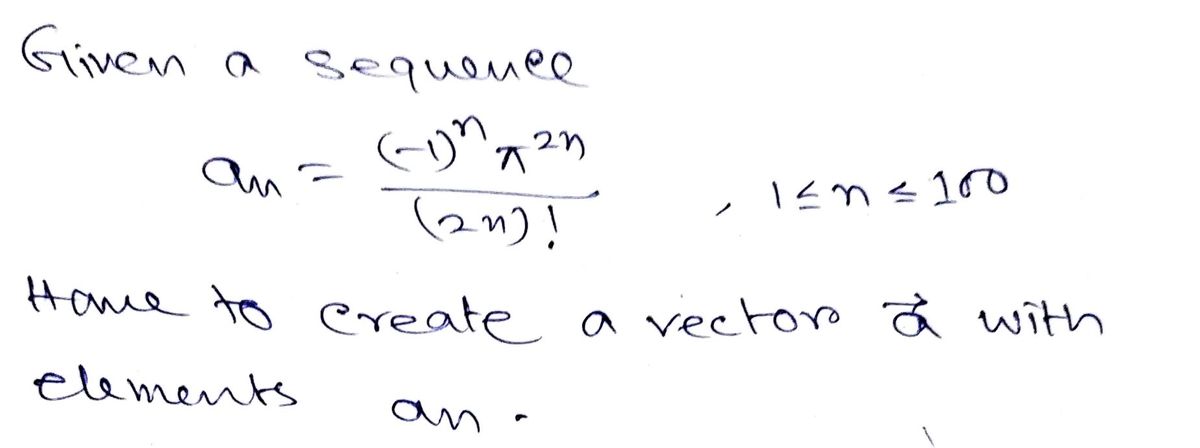 Given a sequence
an = (-1)^n π^2n / (2n)! , 1 ≤ n ≤ 100
Have to create a vector a⃗ with
elements an .